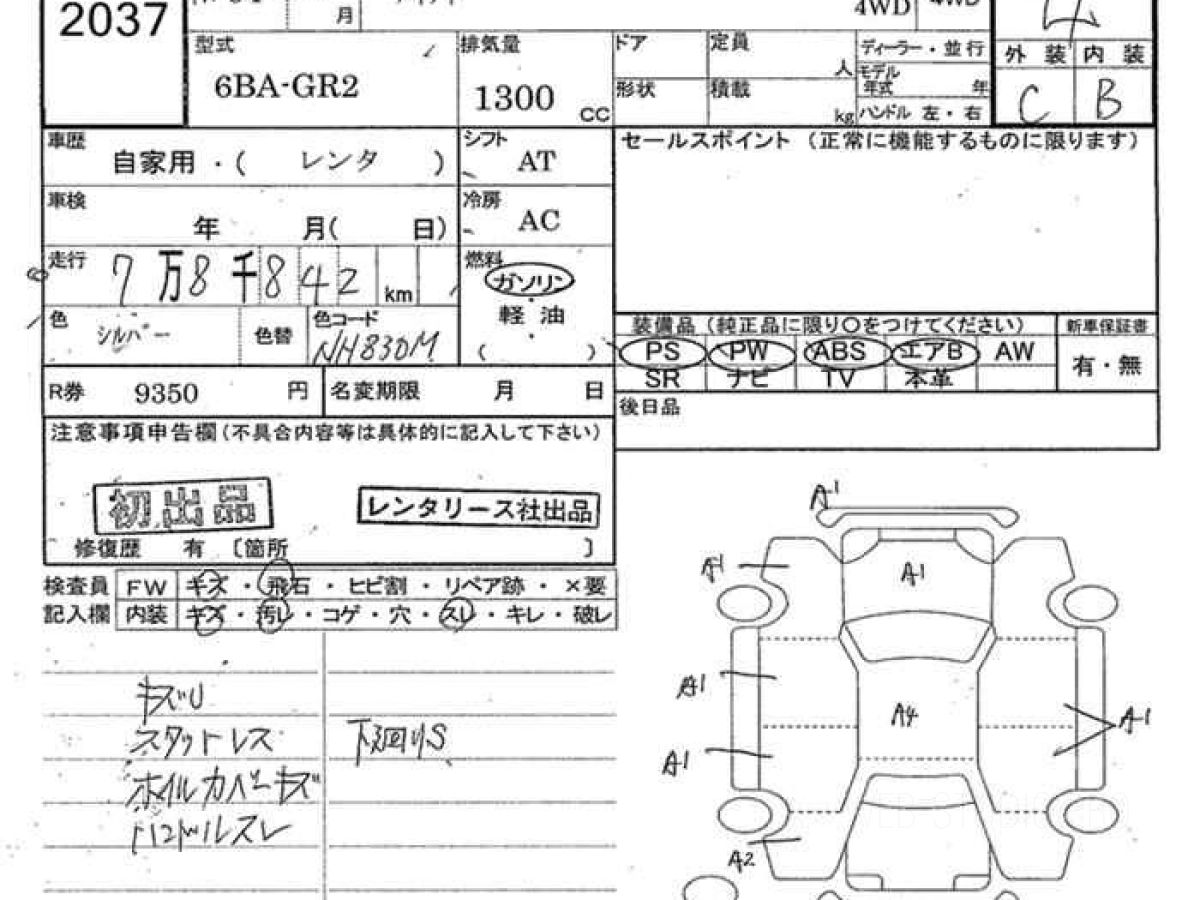 2037
月
4WD
4WD
4
型式
6BA-GR2
排気量
1300 cc
ドア
定員
人
形状
積載
kg
ディーラー・並行
モデル年式 年
ハンドル 左・右
外装 内装
C B
車歴
自家用・( レンタ )
シフト
AT
セールスポイント (正常に機能するものに限ります)
車検
年 月( 日)
冷房
AC
走行
7万8千842 km
燃料
ガソリン
軽油
( )
色
シルバー
色替
色コード
NH830M
装備品 (純正品に限り〇をつけてください)
新車保証書
PS PW ABS エアB AW
有・無
SR ナビ TV 本革
R券 9350 円
名変期限 月 日
後日品
注意事項申告欄(不具合内容等は具体的に記入して下さい)
初出品
レンタリース社出品
修復歴 有 〔箇所 〕
検査員 FW キズ・飛石・ヒビ割・リペア跡・×要
記入欄 内装 キズ・汚レ・コゲ・穴・スレ・キレ・破レ
キズU
スタットレス
下廻りS
ホイルカバーキズ
ハンドルスレ
A1
A1
A1
A1
A4
A1
A1
A2